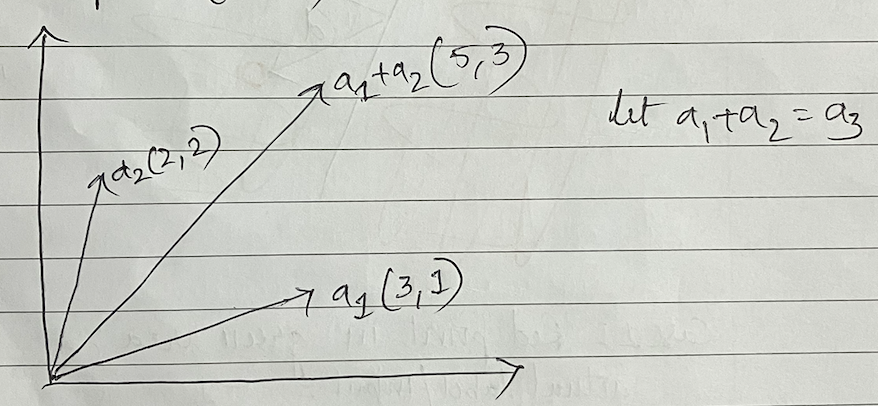 a₁+a₂(5,3)
let a₁+a₂=a₃
a₂(2,2)
a₁(3,1)